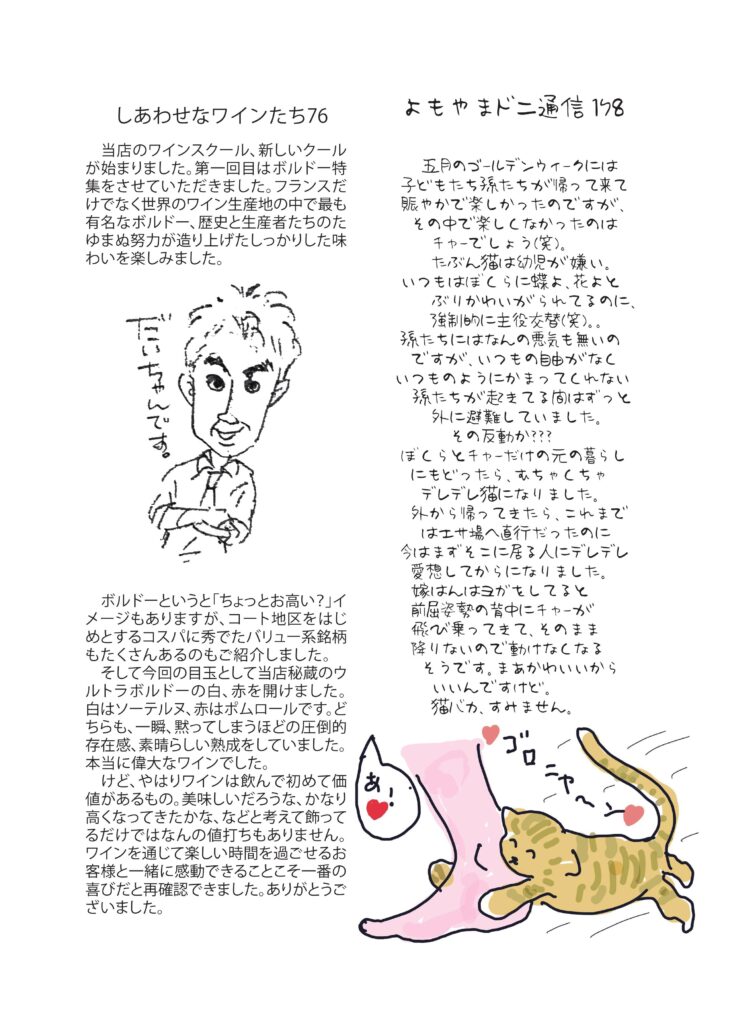 しあわせなワインたち76
当店のワインスクール、新しいクール
が始まりました。第一回目はボルドー特
集をさせていただきました。フランスだ
けでなく世界のワイン生産地の中で最も
有名なボルドー、歴史と生産者たちのた
ゆまぬ努力が造り上げたしっかりした味
わいを楽しみました。
だいちゃんです。
ボルドーというと「ちょっとお高い？」イ
メージもありますが、コート地区をはじ
めとするコスパに秀でたバリュー系銘柄
もたくさんあるのもご紹介しました。
そして今回の目玉として当店秘蔵のウ
ルトラボルドーの白、赤を開けました。
白はソーテルヌ、赤はポムロールです。ど
ちらも、一瞬、黙ってしまうほどの圧倒的
存在感、素晴らしい熟成をしていました。
本当に偉大なワインでした。
けど、やはりワインは飲んで初めて価
値があるもの。美味しいだろうな、かなり
高くなってきたかな、などと考えて飾って
るだけではなんの値打ちもありません。
ワインを通じて楽しい時間を過ごせるお
客様と一緒に感動できることこそ一番の
喜びだと再確認できました。ありがとうご
ざいました。
よもやまドニ通信158
五月のゴールデンウィークには
子どもたち孫たちが帰って来て
賑やかで楽しかったのですが、
その中で楽しくなかったのは
チャーでしょう(笑)。
たぶん猫は幼児が嫌い。
いつもはぼくらに蝶よ、花よと
ぶりかわいがられてるのに、
強制的に主役交替(笑)。。
孫たちにはなんの悪気も無いの
ですが、いつもの自由がなく
いつものようにかまってくれない
孫たちが起きてる間はずっと
外に避難していました。
その反動か???
ぼくらとチャーだけの元の暮らし
にもどったら、むちゃくちゃ
デレデレ猫になりました。
外から帰ってきたら、これまで
はエサ場へ直行だったのに
今はまずそこに居る人にデレデレ
愛想してからになりました。
嫁はんはヨガをしてると
前屈姿勢の背中にチャーが
飛び乗ってきて、そのまま
降りないので動けなくなる
そうです。まあかわいいから
いいんですけど。
猫バカ、すみません。
あー!
ゴロ
ニャ〜ン